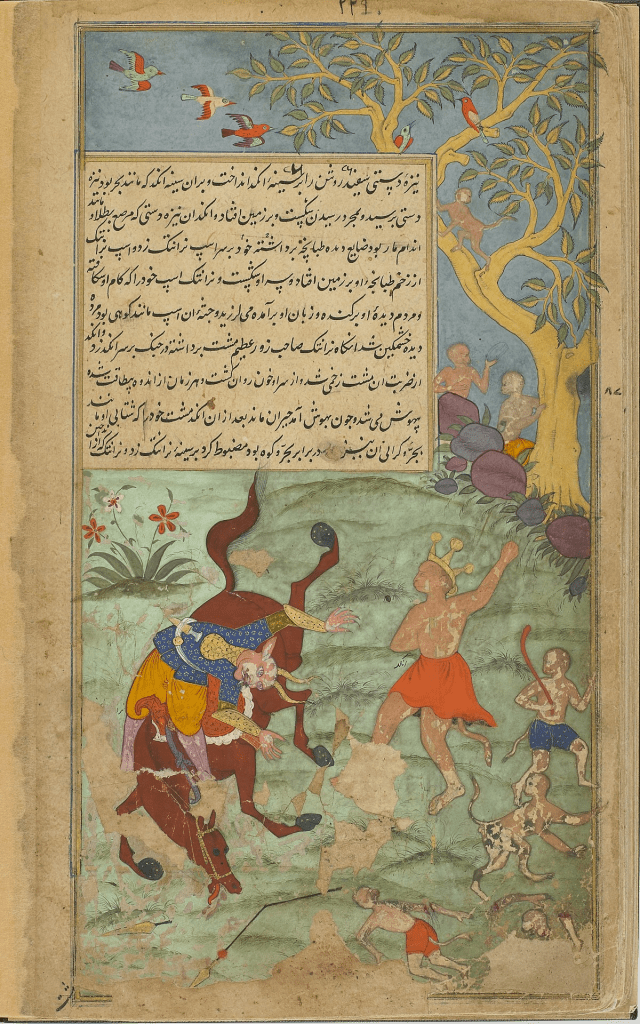 ۲۲۹
نیزه دستی سعیندر روشن را بر سینه انکد انداخت و بران سینه انکد که مانند بجر بود نیزه
دستی برسید و بمجرد رسیدن بشکست و بر زمین افتاد و انکد ان نیزه دستی که مرصع بطلا و مانند
اندام مار بود ضایع دیده طپانچه برداشته خود بر سر اسپ نرانتک زد و اسپ نرانتک
از زخم طپانچه او بر زمین افتاد و اسپ خود را که کام او
و مردم دیده او بر کشته و زبان او برآمده می لرزید و جثه ان اسپ مانند کوهی بود مرده
دیده خشمکین شد انکاه نرانتک صاحب زور عظیم مشت برداشته در جنک بر سر انکد زد و انکد
از ضرب ان مشت زخمی شد و از سر او خون روان کشت و هر زمان از اندوه بیطاقت شده
بیهوش می شد و چون بهوش آمد حیران ماند بعد ازان انکد مشت خود را که شتابی او مانند
بجر و کرانی ان نیز در برابر بجر و کوه بود مضبوط کرد بر سینه نرانتک زد و نرانتک